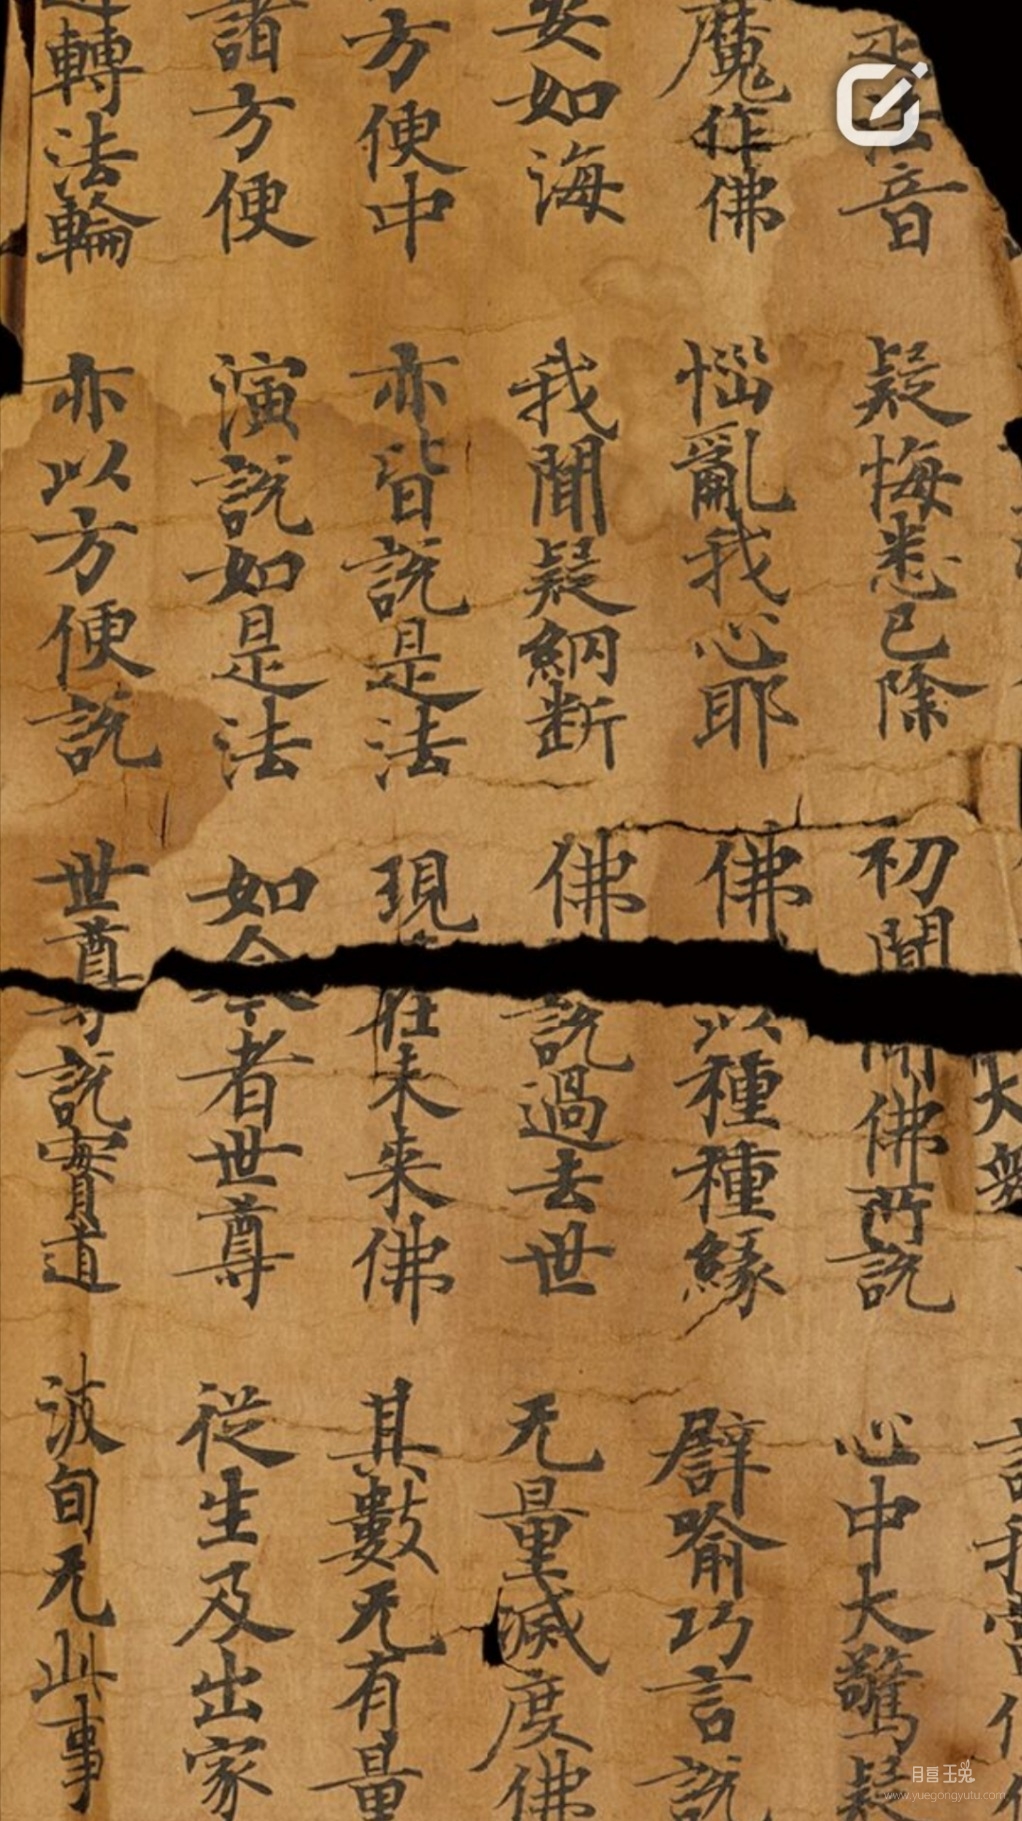 大眾 說我當作
法音 疑悔悉已除 初聞佛所說 心中大驚疑
魔作佛 惱亂我心耶 佛以種種緣 譬喻巧言說
安如海 我聞疑網断 佛說過去世 无量滅度佛
方便中 亦皆說是法 現在未来佛 其數无有量
諸方便 演說如是法 如今者世尊 從生及出家
轉法輪 亦以方便說 世尊說實道 波旬无此事
月宫玉兔
www.yuegongyutu.com